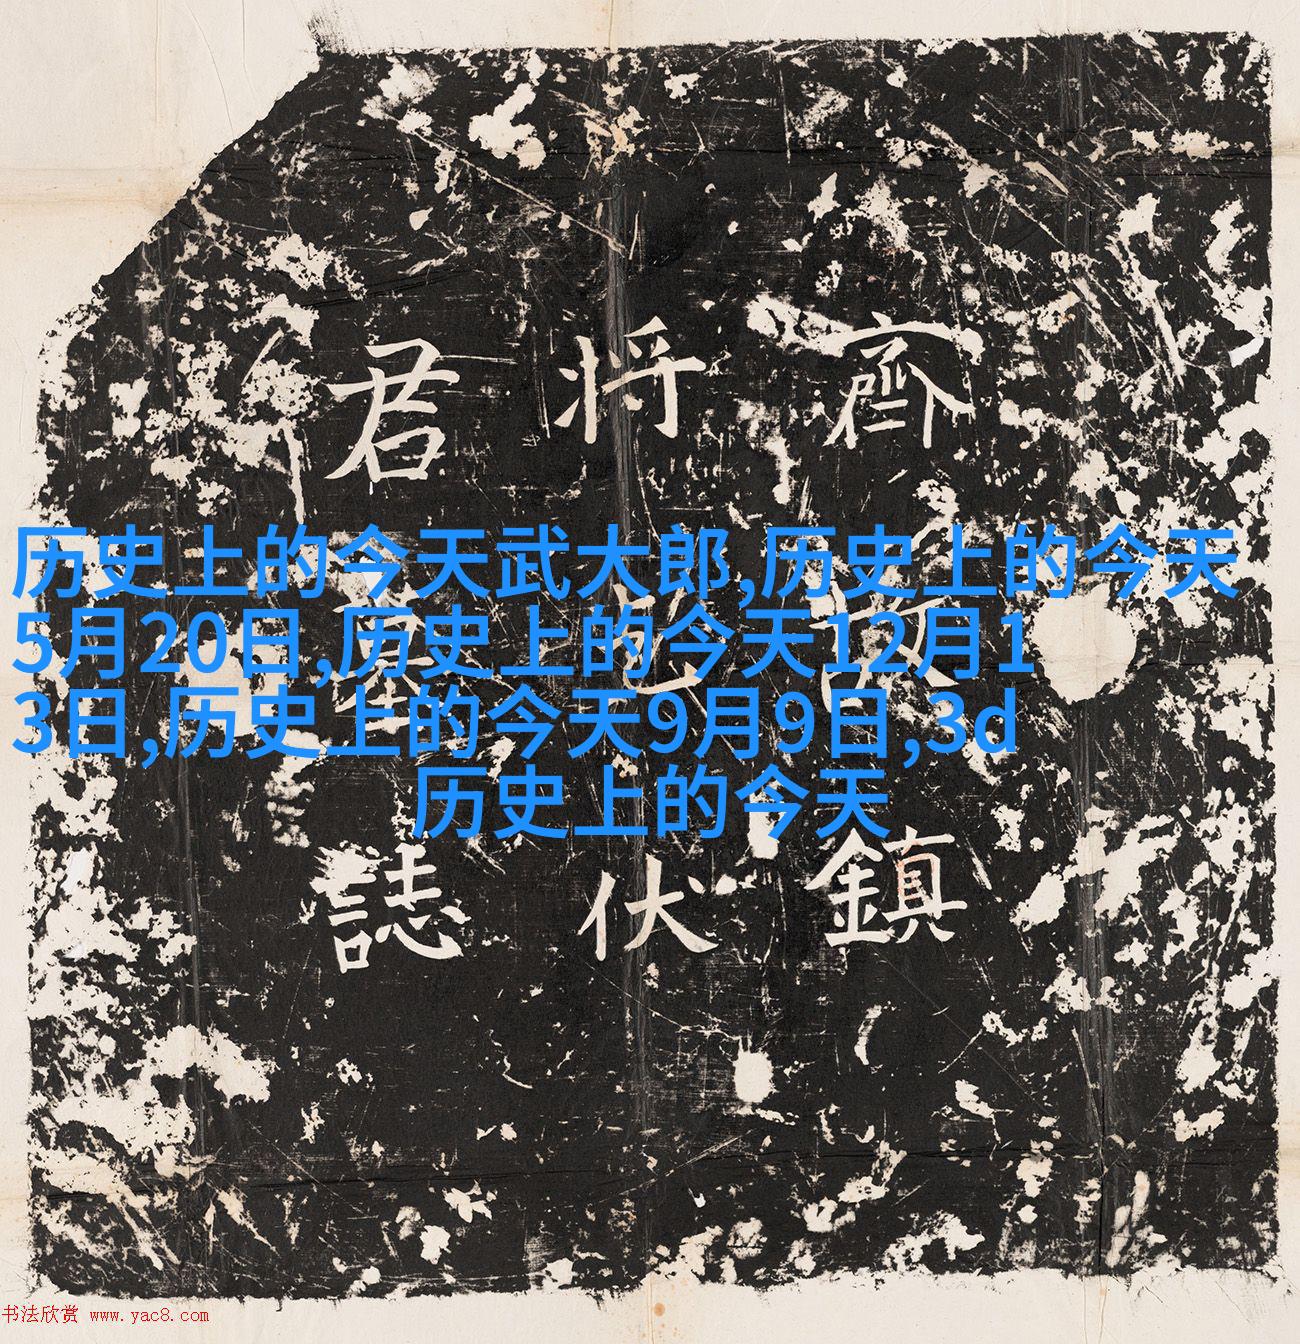 齊故鎮
将乞伏
君墓誌
历史上的今天武大郎,历史上的今天
5月20日,历史上的今天12月1
3日,历史上的今天9月9日,3d
历史上的今天
书法欣赏 www.yac8.com